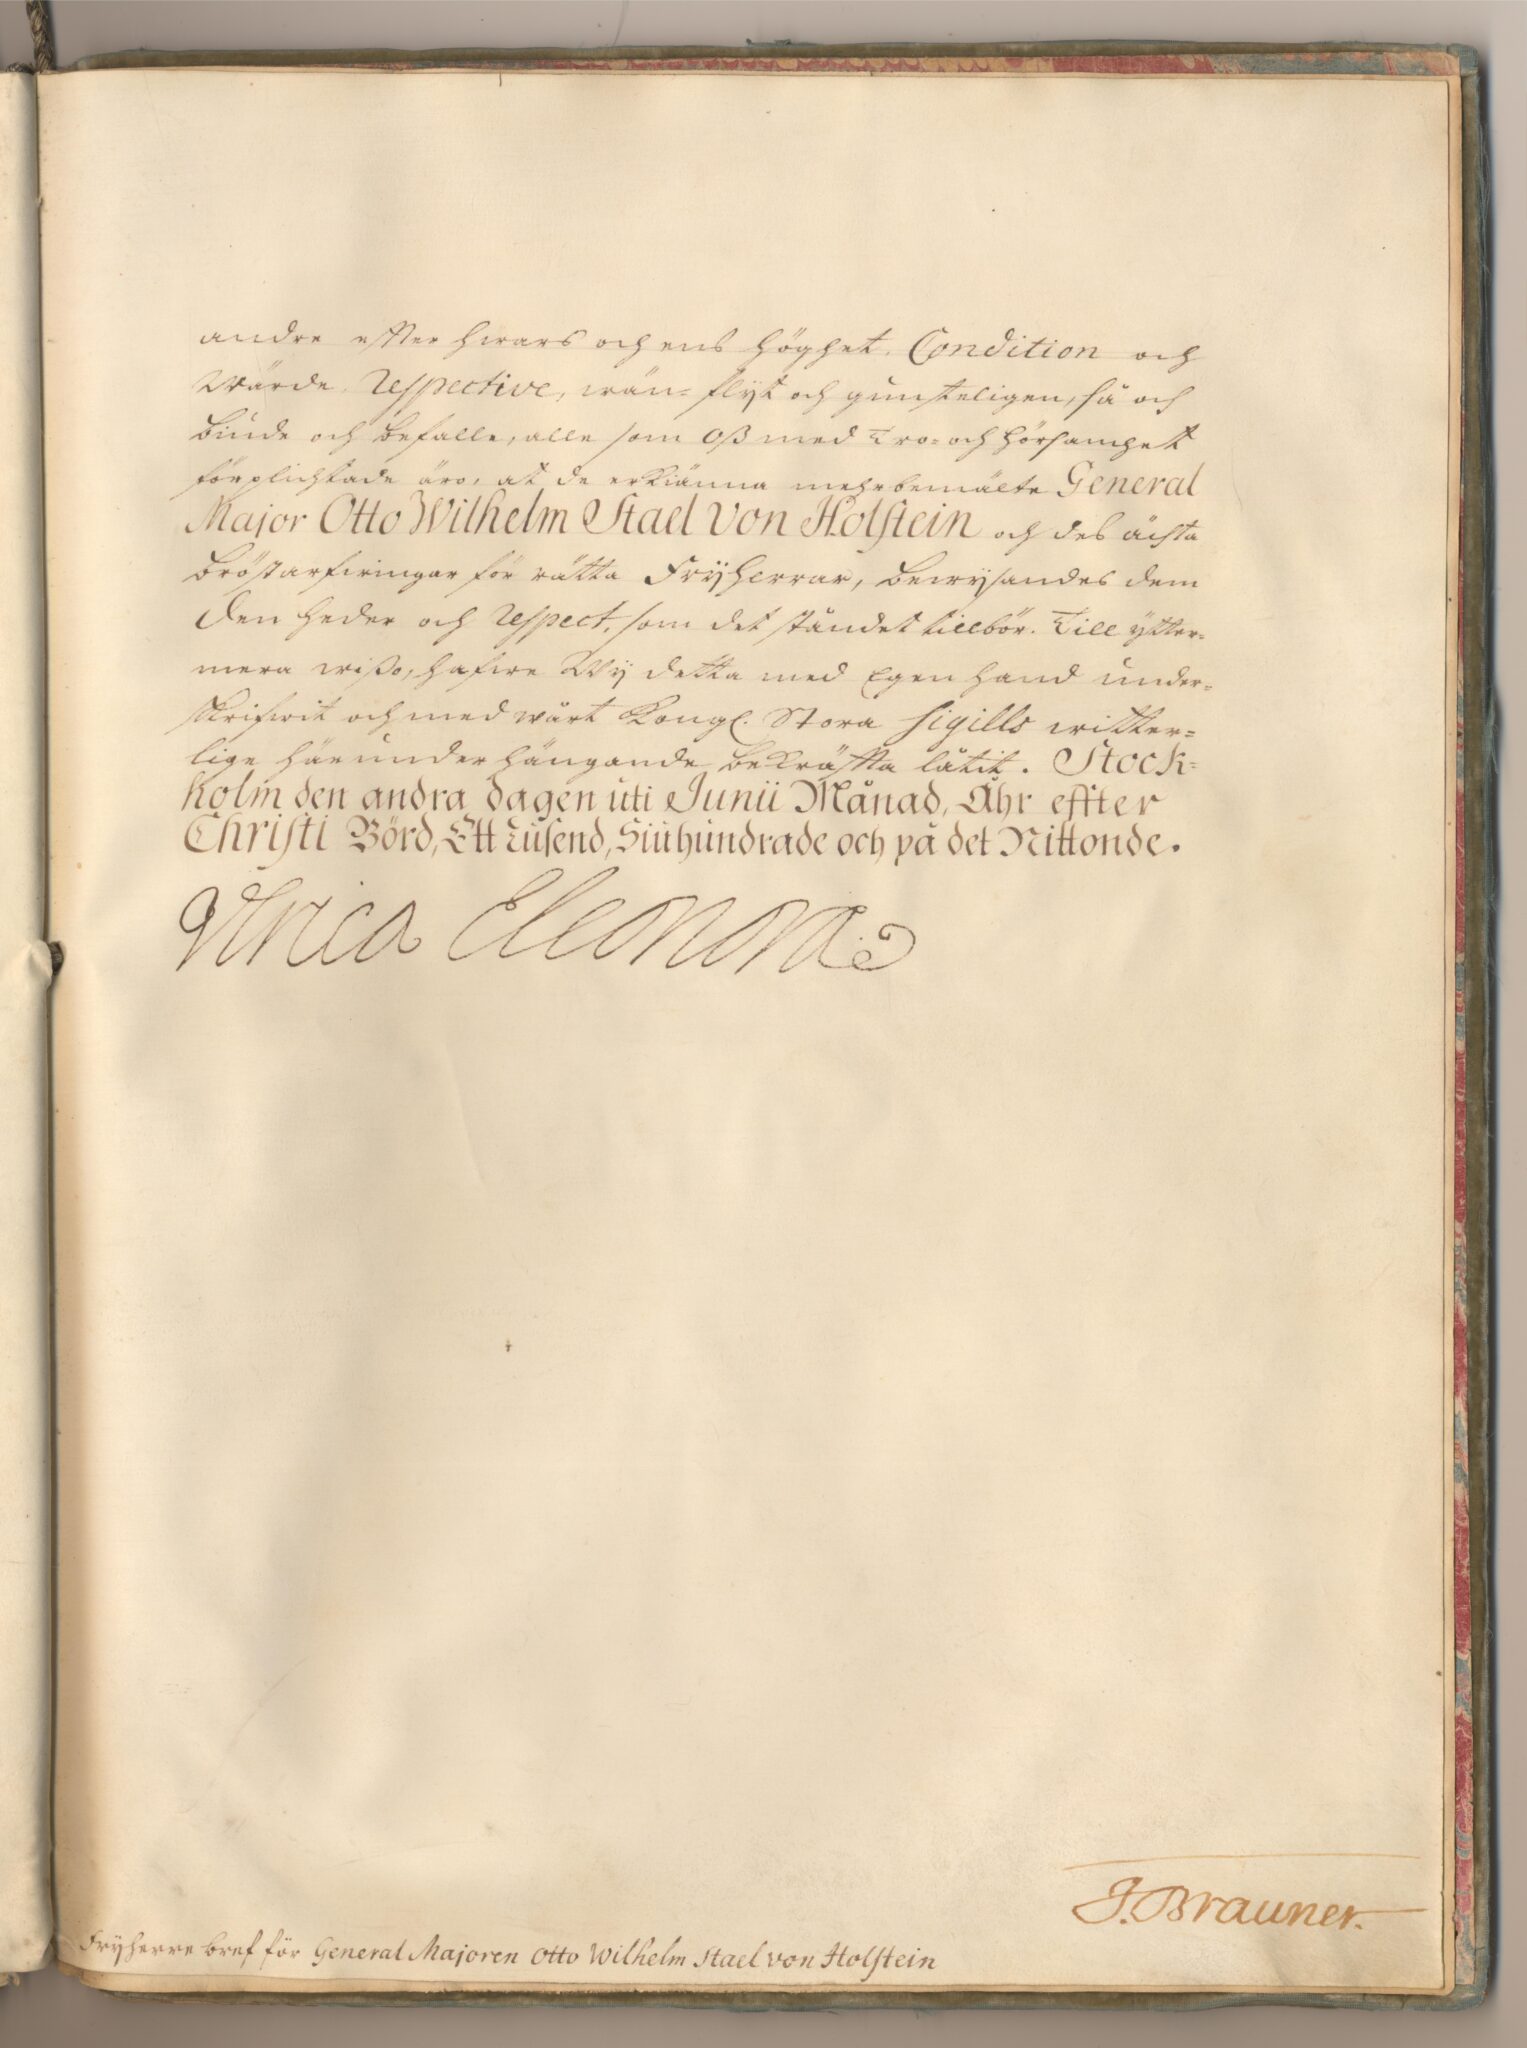 andre efter hwars och ens Höghet, Condition och
Wärde, respective, wän-flyt och gunsteligen, så och
biude och befalle, alle som Oß med Tro- och Hörsamhet
förplichtade äro, at de erkiänna mehrbemälte General
Major Otto Wilhelm Stael Von Holstein och des ächta
bröstarfwingar för rätta Fryherrar, bewysandes dem
den heder och respect, som det ståndet tillbör. Till ytter-
mera wißo, hafwe Wy detta med Egen hand under-
skrifwit och med wårt Kongl. Stora Sigills witter-
lige härunderhängande bekräffta låtit. Stock-
holm den andra dagen uti Junii Månad, Åhr effter
Christi Börd, Ett Tusend, Siuhundrade och på det Nittonde.
Ulrica Eleonora
J. Brauner.
Fryherre bref för General Majoren Otto Wilhelm Stael von Holstein